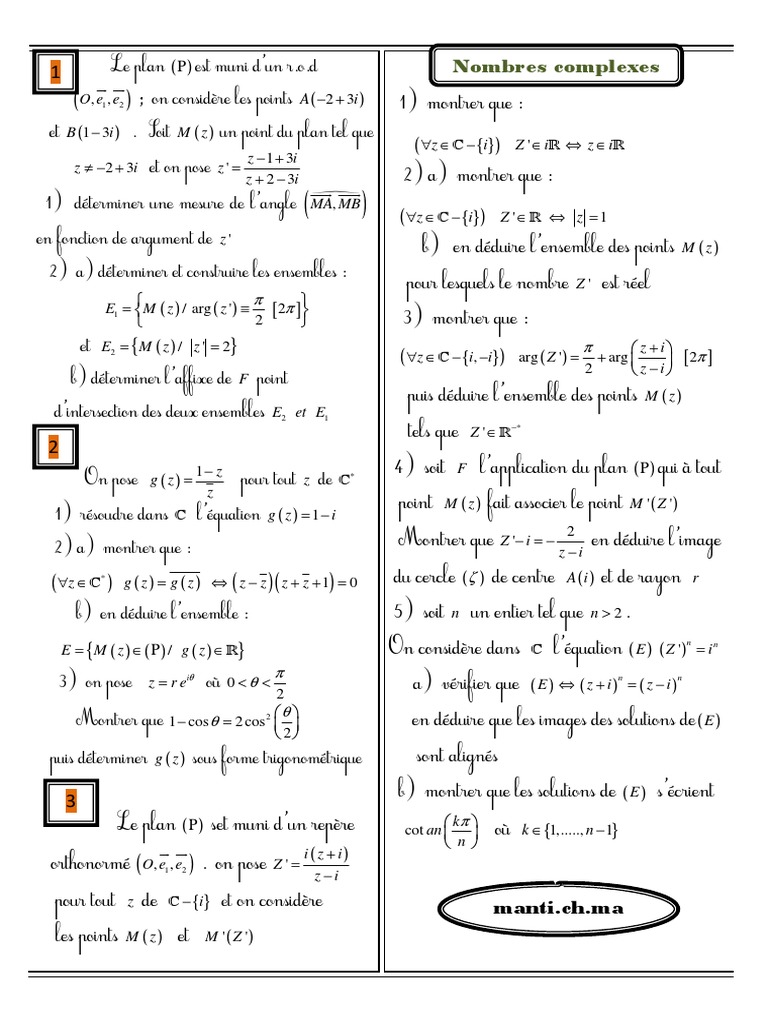 1
Le plan (P) est muni d'un r.o.d
(O, e₁→, e₂→) ; on considère les points A(−2+3i)
et B(1−3i) . Soit M(z) un point du plan tel que
z ≠ −2+3i et on pose z' = (z−1+3i)/(z+2−3i)
1) déterminer une mesure de l'angle (MA→, MB→)
en fonction de argument de z'
2) a) déterminer et construire les ensembles :
E₁ = {M(z) / arg(z') ≡ π/2 [2π]}
et E₂ = {M(z) / |z'| = 2}
b) déterminer l'affixe de F point
d'intersection des deux ensembles E₂ et E₁
2
On pose g(z) = (1−z)/z̄ pour tout z de ℂ*
1) résoudre dans ℂ l'équation g(z) = 1−i
2) a) montrer que :
(∀z∈ℂ*) g(z) = \overline{g(z)} ⇔ (z−z̄)(z+z̄+1) = 0
b) en déduire l'ensemble :
E = {M(z)∈(P) / g(z)∈ℝ}
3) on pose z = re^{iθ} où 0<θ<π/2
Montrer que 1−cosθ = 2cos²(θ/2)
puis déterminer g(z) sous forme trigonométrique
3
Le plan (P) set muni d'un repère
orthonormé (O, e₁→, e₂→) . on pose Z' = i(z+i)/(z−i)
pour tout z de ℂ−{i} et on considère
les points M(z) et M'(Z')
Nombres complexes
1) montrer que :
(∀z∈ℂ−{i}) Z'∈iℝ ⇔ z∈iℝ
2) a) montrer que :
(∀z∈ℂ−{i}) Z'∈ℝ ⇔ |z|=1
b) en déduire l'ensemble des points M(z)
pour lesquels le nombre Z' est réel
3) montrer que :
(∀z∈ℂ−{i,−i}) arg(Z') = π/2 + arg((z+i)/(z−i)) [2π]
puis déduire l'ensemble des points M(z)
tels que Z'∈ℝ⁻*
4) soit F l'application du plan (P) qui à tout
point M(z) fait associer le point M'(Z')
Montrer que Z'−i = −2/(z−i) en déduire l'image
du cercle (ζ) de centre A(i) et de rayon r
5) soit n un entier tel que n > 2 .
On considère dans ℂ l'équation (E) (Z')ⁿ = iⁿ
a) vérifier que (E) ⇔ (z+i)ⁿ = (z−i)ⁿ
en déduire que les images des solutions de (E)
sont alignés
b) montrer que les solutions de (E) s'écrient
cotan(kπ/n) où k∈{1,.....,n−1}
manti.ch.ma